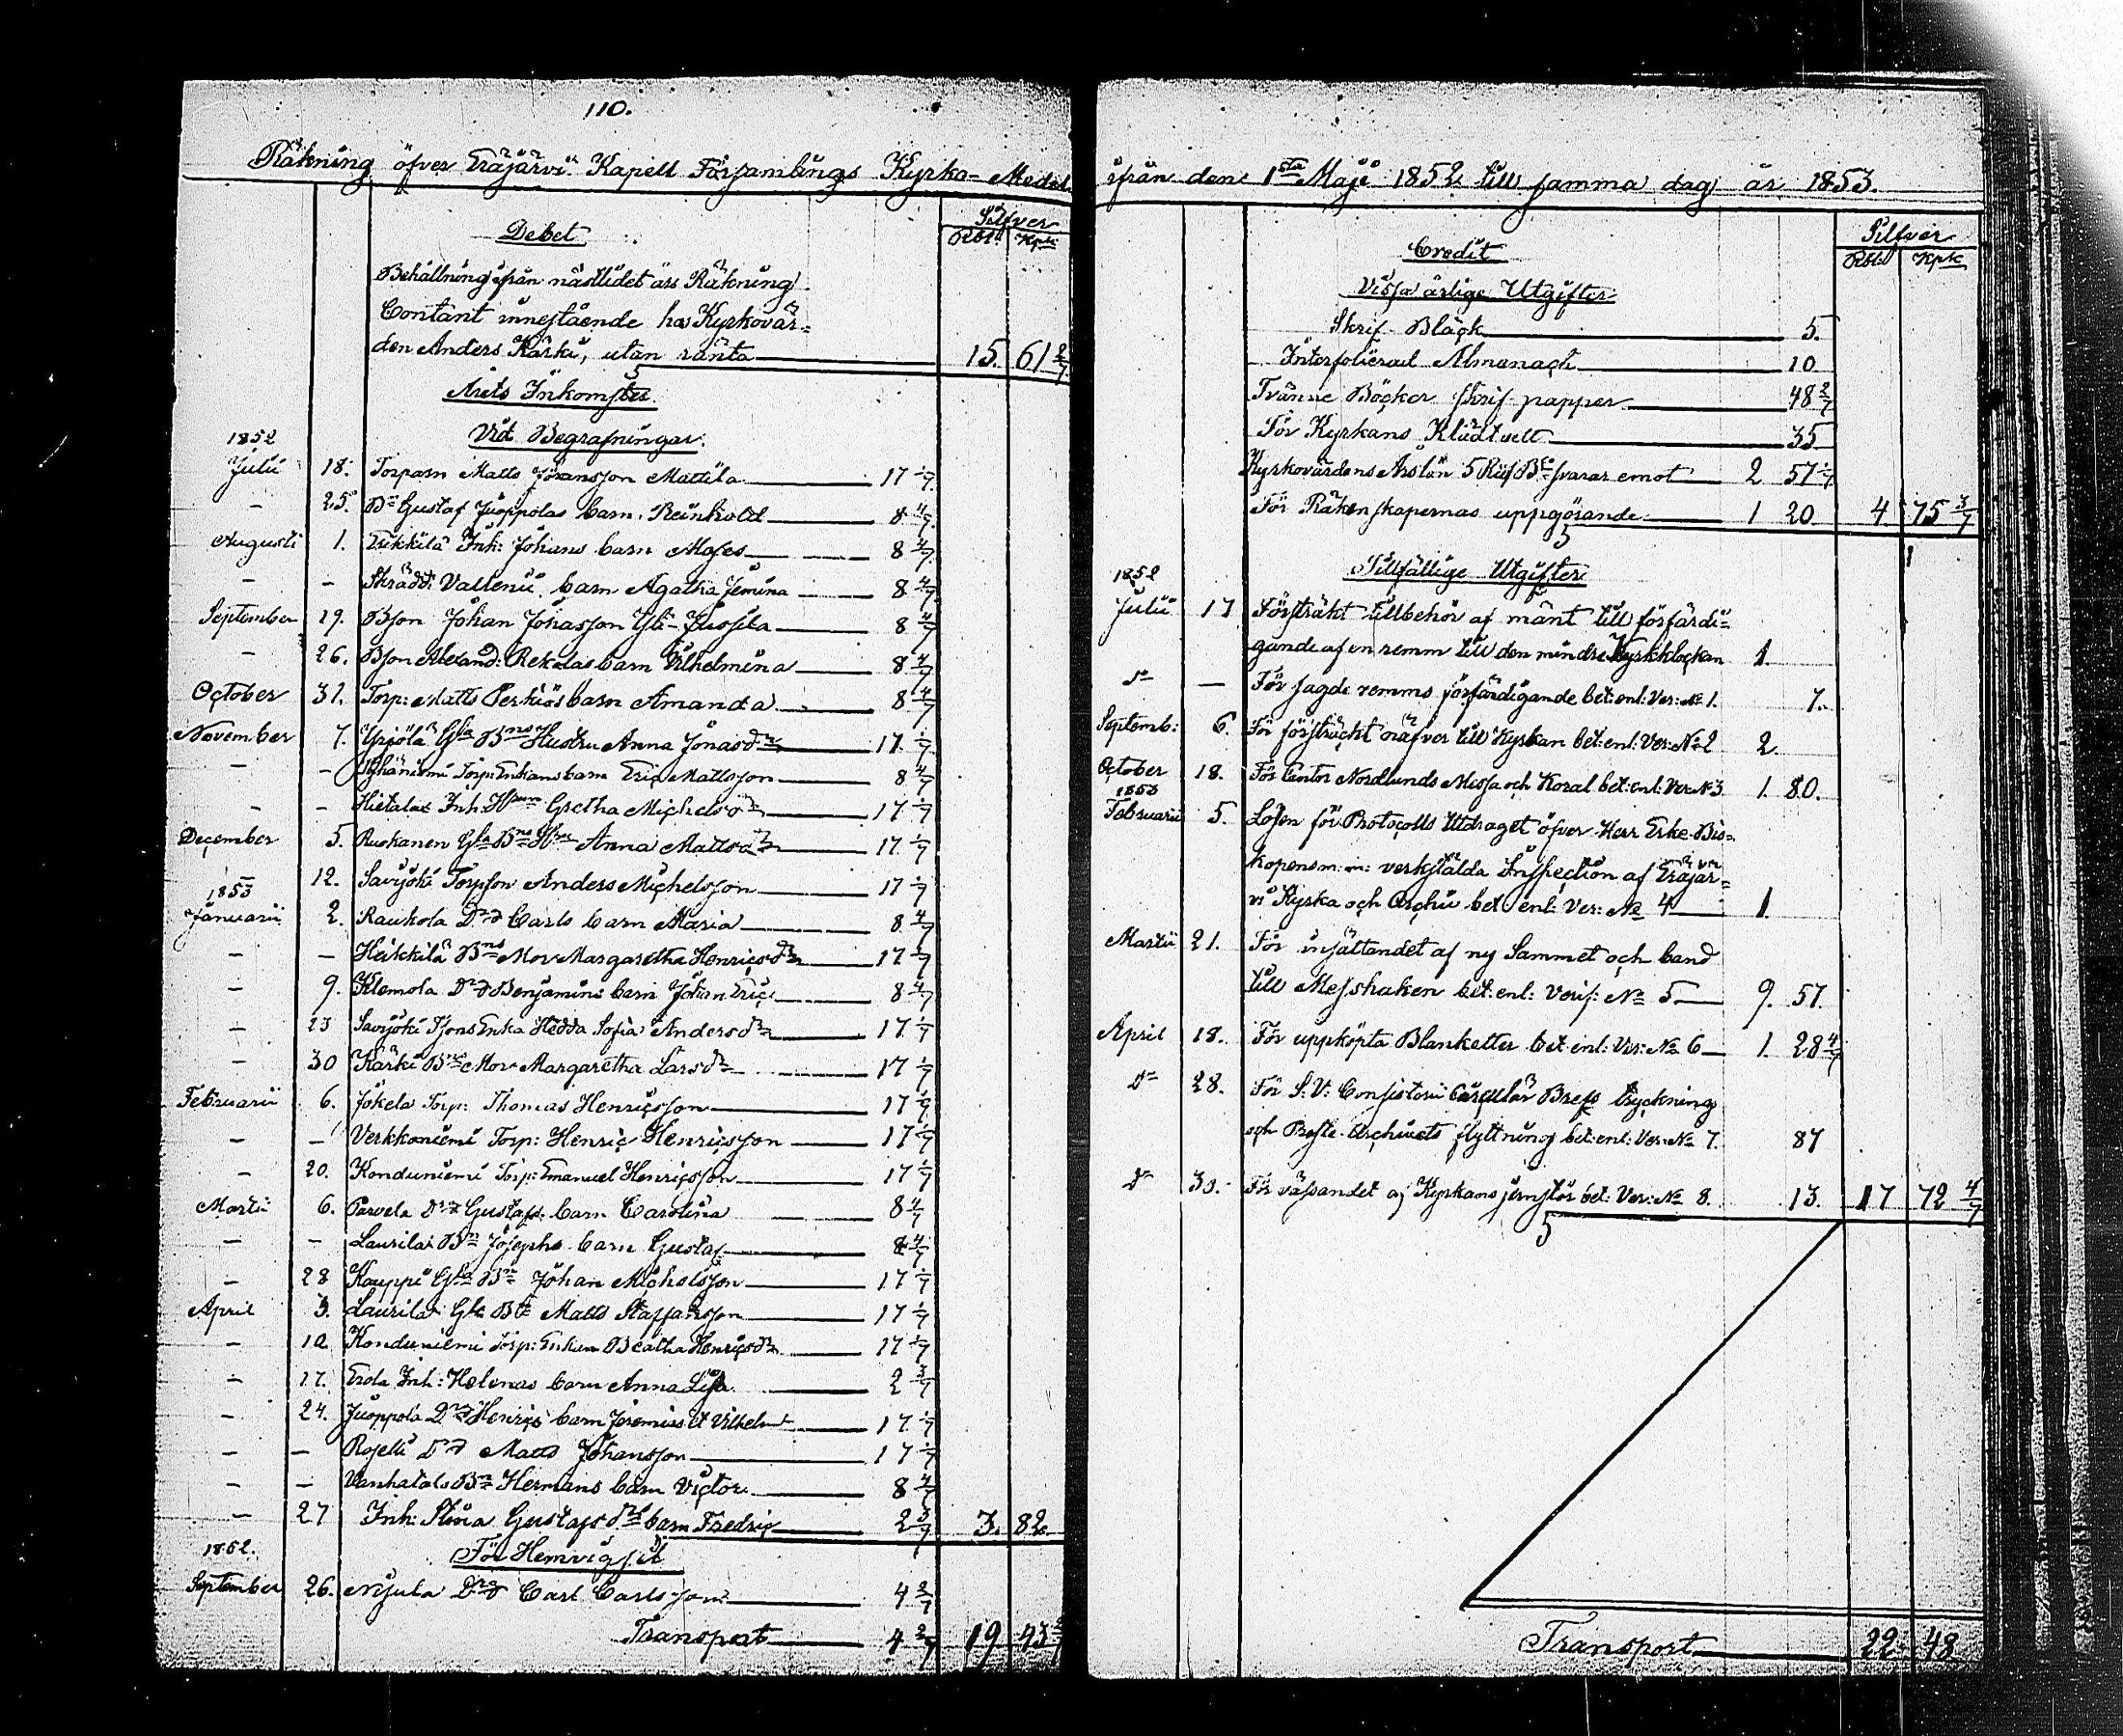 110.
Räkning öfver Eräjärvi Kapell Församlings Kyrko-Medel
Silfver
Debet
Rbl. Kpk
Behållning ifrån nästlidet års Räkning
Contant innestående hos Kyrkovär=
den Anders Kärki, utan ränta 15. 61 2/7
Årets Inkomster
Vid Begrafningar.
1852
Julii 18. Torparn Matts Johansson Mattila 17 1/7
- 25. Dn Gustaf Juoppolas barn Reinhold 8 4/7
Augusti 1. Eikkilä Inh: Johans barn Moses 8 4/7
- - Skrädd: Vallenii barn Agatha Jemina 8 4/7
September 19. Bson Johan Johansson Yli-Jussila 8 4/7
- 26. Bson Alexand: Rekolas barn Vilhelmina 8 4/7
October 31. Torp: Matts Perkiös barn Amanda 8 4/7
November 7. Yrjölä Gla Bns Hustru Anna Jonasdr 17 1/7
- - Torp: Enkans barn Eric Mattsson 8 4/7
- - Hietalax Inh: Gretha Michelsdr 17 1/7
December 5. Ruokanen Gla Bns Anna Mattsdr 17 1/7
12. Savijoki Torpson Anders Michelsson 17 1/7
1853
Januarii 2. Raukola Drd Carls barn Maria 8 4/7
- - Heikkilä Bns Mor Margaretha Henricsdr 17 1/7
- 9. Klemola Drd Benjamins barn Johan Eric 8 4/7
- 23 Savijoki Enka Hedda Sofia Andersdr 17 1/7
- 30 Kärki Bns Mor Margaretha Larsdr 17 1/7
Februarii 6. Jokela Torp: Thomas Henricsson 17 1/7
- - Verkkoniemi Torp: Henric Henricsson 17 1/7
- 20. Konduniemi Torp: Emanuel Henricsson 17 1/7
Martii 6. Parvela Drd Gustafs barn Carolina 8 4/7
- - Laurila Bn Josephs barn Gustaf 8 4/7
- 28 Kauppi Gla Bn Johan Michelsson 17 1/7
April 3. Laurila Gla Bn Matts Staffansson 17 1/7
- 10 Konduniemi Torp: Enkan Beatha Henricsdr 17 1/7
- 17. Erola Inh: Helenas barn Anna Lisa 2 3/7
- 24. Juoppola Drd Henrics barn Jeremias et Vilhelm 17 1/7
- - Roselli Drd Matts Johansson 17 1/7
- - Vanhatalo Bn Hermans barn Victor 8 4/7
- 27 Inh: Stina Gustafsdrs barn Fredric 2 3/7 3. 82.
1852.
För Hemvigsel
September 26. Drd Carl Carlsson 4 2/7
Transport 4 2/7 19 43 2/7
ifrån den 1sta Maji 1852 till samma dag år 1853.
Silfver
Credit
Rbl. Kpk
Vissa årlige Utgifter
Skrif Bläck 5.
Interfolierad Almanach 10
Tvänne Böcker skrif papper 48 2/7
För Kyrkans Klädtvett 35
Kyrkovärdens Årslön 5 Rub Bco svarar emot 2 57 1/7
För Räkenskapernas uppgörande 1 20 4 75 3/7
Tillfällige Utgifter
1852
Julii 17 Försträkt tillbehör af mänt till förfärdi=
gande af en remm till den mindre Kyrkklockan 1.
dn — För sagde remms förfärdigande bet: enl: Ver: No 1. 7.
Septemb: 6. För försträckt till Kyrkan bet: enl: Ver: No 2 2
October 18. För Cantor Nordlunds Messa och Koral bet: enl: Ver: No 3 1. 80.
1853
Februarii 5. Lösen för Protocolls Utdraget öfver Herr Erke-Bis=
kopens m: m: verkstälda Inspection af Eräjär=
vi Kyrka och Archiv bet: enl: Ver: No 4 1
Martii 21. För insättandet af ny Sammet och band
till Messhaken bet: enl: Verif: No 5 9. 57.
April 18. För uppköpta Blanketter bet: enl: Ver: No 6 1. 28 4/7
dn 28. För S: V: Consistorii Circulär Brefs tryckning
och Archivets flyttning bet: enl: Ver: No 7. 87
dn 30. För af Kyrkans bet: Ver: No 8. 13. 17 72 4/7
Transport 22 48